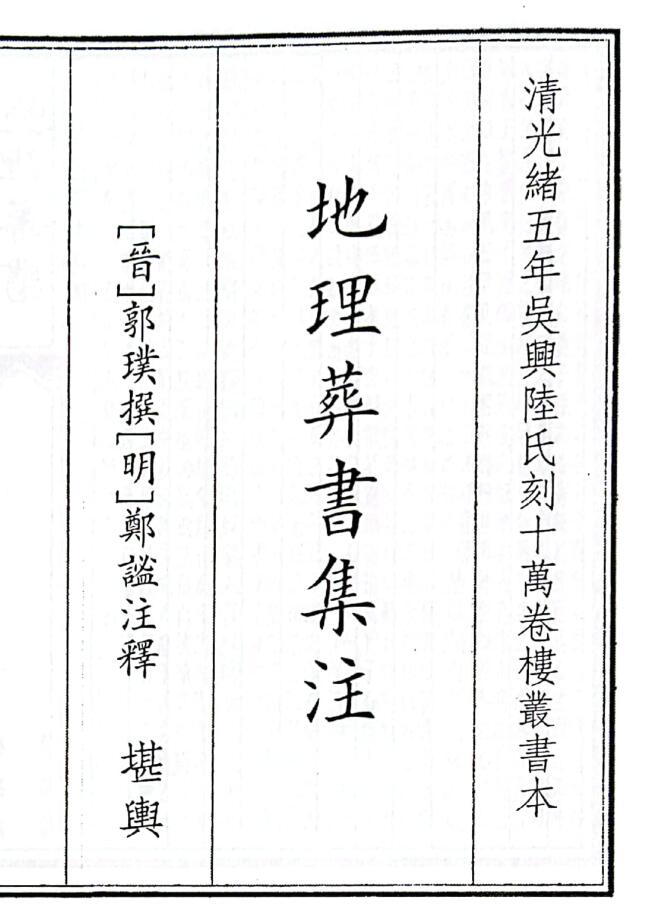 清光緒五年吳興陸氏刻十萬卷樓叢書本
地理葬書集注
[晉]郭璞撰[明]鄭謐注釋 堪輿